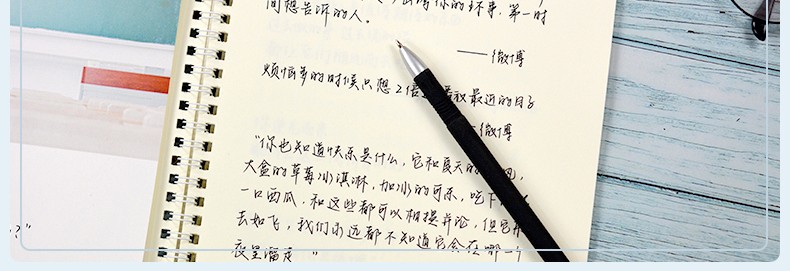 你的环象，第一时
间想告诉的人。
——微博
烦恼多的时候只想2倍 最近的日子
微博
“你也知道快乐是什么，它和夏天的
大盒的草莓冰淇淋，加冰的可乐，吃下
一口西瓜，和这些都可以相提并论，但它
去如飞，我们永远都不知道它会在哪一个
夜里溜走”
?”